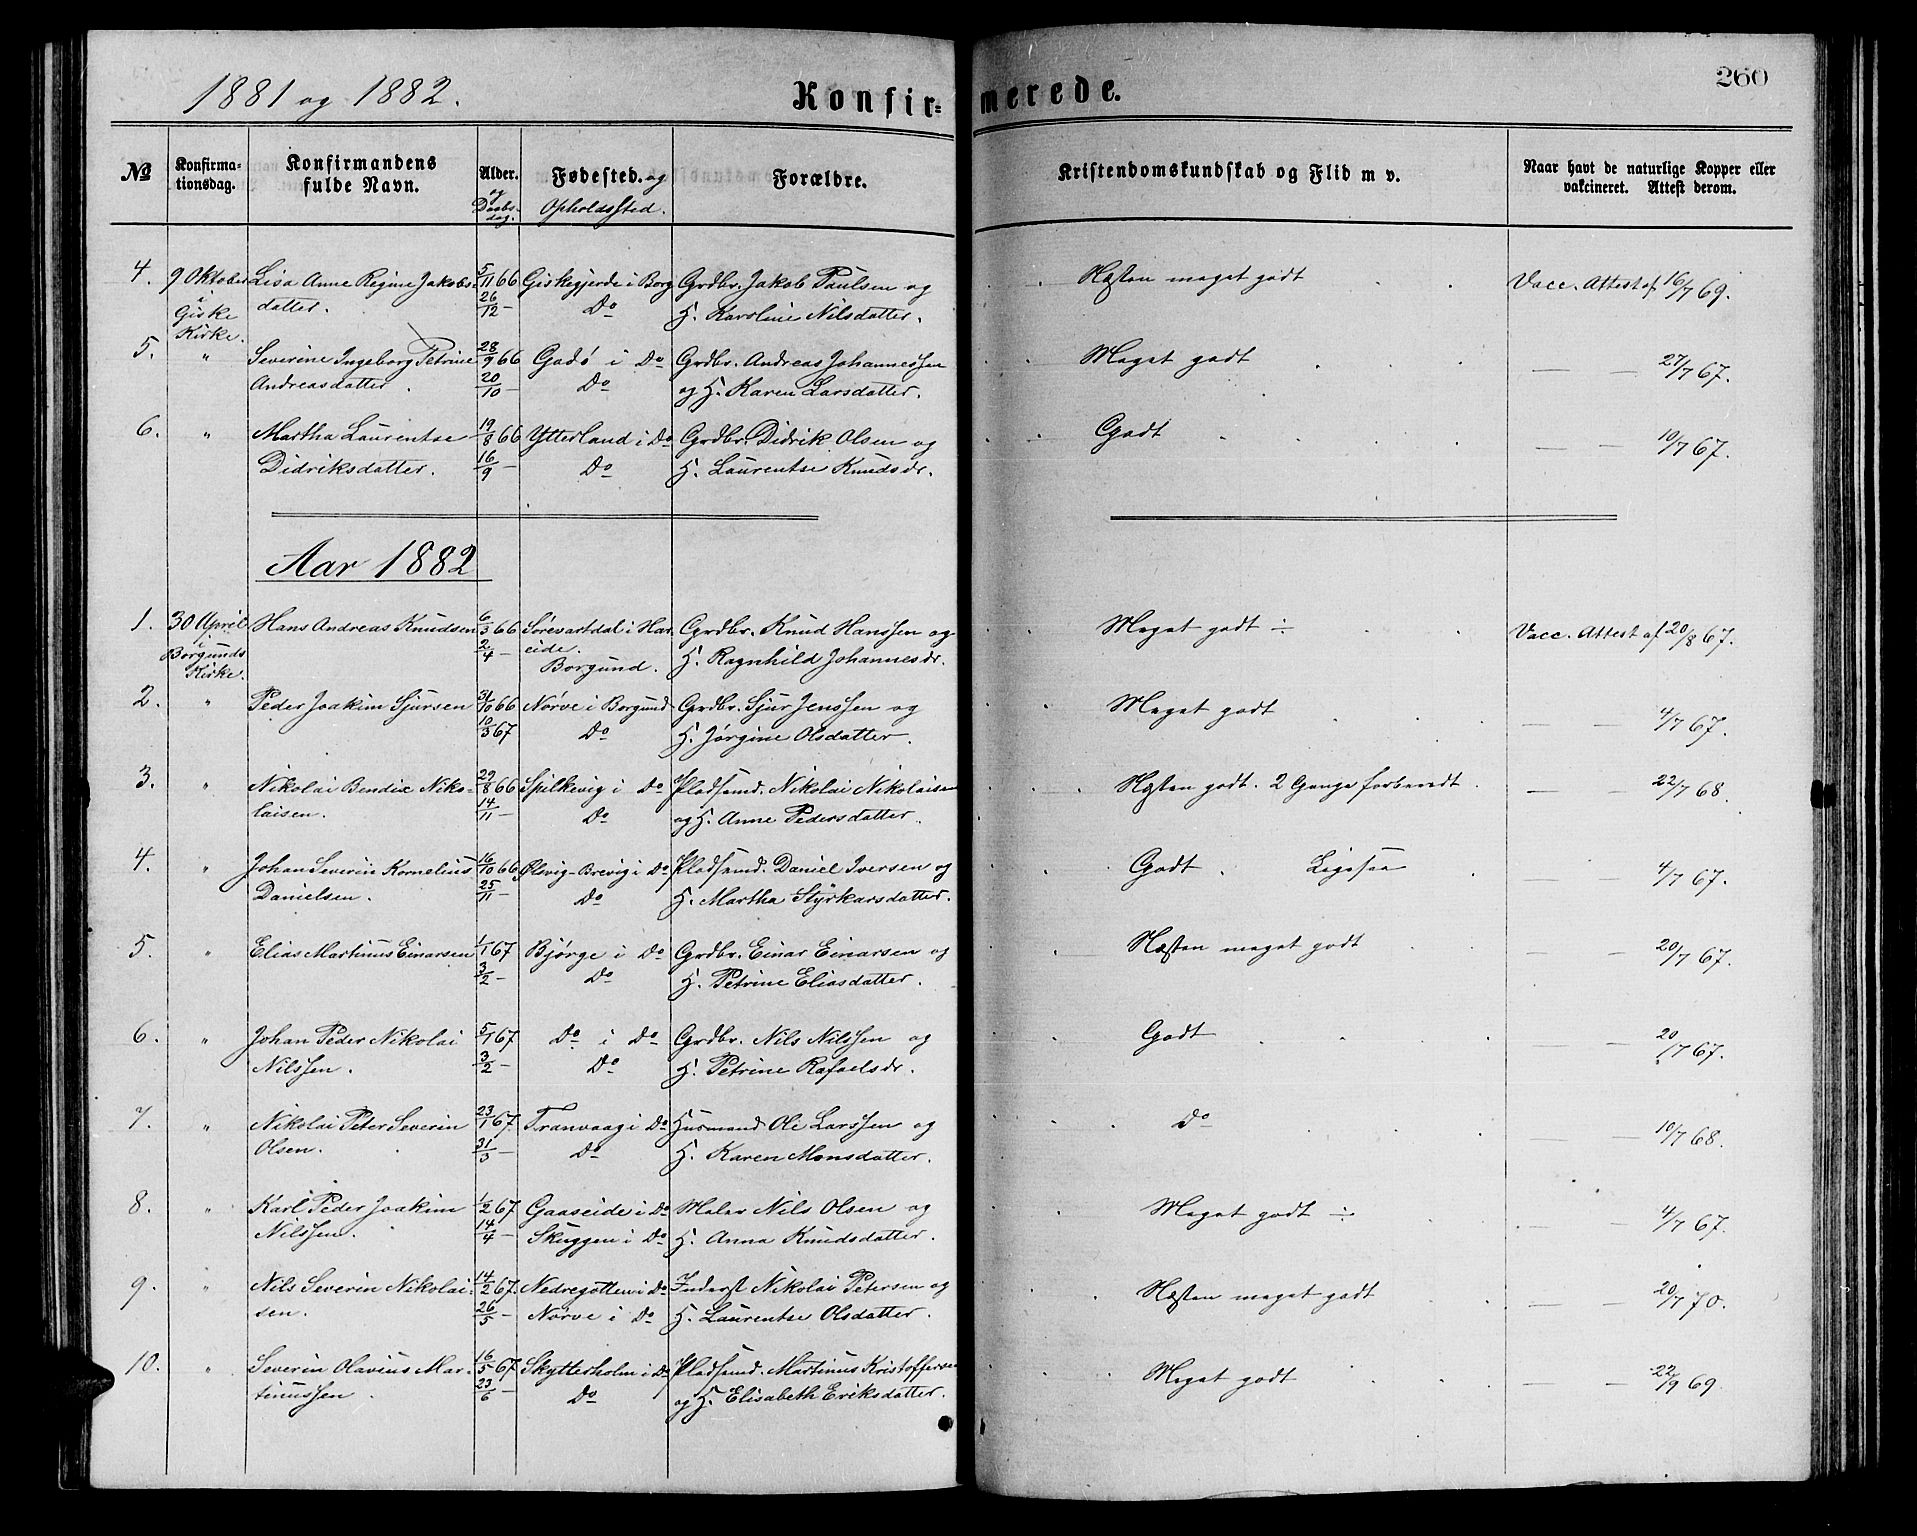 1881 og 1882.
Konfirmerede.
260
No
Konfirmationsdag.
Konfirmandens fulde Navn.
Alder. og Daabsdag.
Fødested. og Opholdssted.
Forældre.
Kristendomskundskab og Flid m v.
Naar havt de naturlige Kopper eller vakcineret. Attest derom.
4. 9 Oktober Lisa Anne Regine Jakobs- 5/11 66 Giskegjerde i Borg Grdbr. Jakob Paulsen og Næsten meget godt Vacc. Attest af 16/7 69.
i Giske Kirke. datter. 26/12 — Do H. Karoline Nilsdatter.
5. " Severine Ingeborg Petrine 28/9 66 Godø i Do Grdbr. Andreas Johannessen Meget godt — — 27/7 67.
Andreasdatter. 20/10 Do og H. Karen Larsdatter.
6. " Martha Laurentse 19/8 66 Ytterland i Do Grdbr. Didrik Olsen og Godt — — 10/7 67.
Didriksdatter. 16/9 — Do H. Laurentse Knudsdr.
Aar 1882
1. 30 April Hans Andreas Knudsen 6/3 66 Sørevartdal i Har- Grdbr. Knud Hanssen og Meget godt ÷ Vacc. Attest af 20/8 67.
i Borgunds Kirke. 2/4 — eide. Borgund. H. Ragnhild Johannesdr.
2. " Peder Joakim Sjursen 31/10 66 Nørve i Borgund Grdbr. Sjur Jenssen og Meget godt — — 4/7 67.
10/3 67 Do H. Jørgine Olsdatter.
3. " Nikolai Bendix Niko- 29/8 66 Spilkevig i Do Pladsmd. Nikolai Nikolaisen Næsten godt. 2 Gange forberedt. — — 22/7 68.
laisen. 14/11 — Do og H. Anne Pedersdatter.
4. " Johan Severin Kornelius 16/10 66 Ølvig-Brevig i Do Pladsmd. Daniel Iversen og Godt. Ligesaa — — 4/7 67.
Danielsen. 25/11 — Do H. Martha Styrkarsdatter.
5. " Elias Martinus Einarsen 1/1 67 Bjørge i Do Grdbr. Einar Einarsen og Næsten meget godt — — 20/7 67.
3/2 — Do H. Petrine Eliasdatter.
6. " Johan Peder Nikolai 5/1 67 Do i Do Grdbr. Nils Nilssen og Godt — — 20/7 67.
Nilssen. 3/2 — Do H. Petrine Rafaelsdr.
7. " Nikolai Peter Severin 23/1 67. Tranvaag i Do Husmand Ole Larssen og Do — — 10/7 68.
Olsen. 31/3 — Do H. Karen Monsdatter.
8. " Karl Peder Joakim 1/2 67 Gaaseide i Do Maler Nils Olsen og Meget godt ÷ — — 4/7 67.
Nilssen. 14/4 — Skuggen i Do H. Anna Knudsdatter.
9. " Nils Severin Nikolai- 14/2 67. Nedregotten i Do Inderst Nikolai Petersen og Næsten meget godt — — 20/7 70.
sen. 26/5 — Nørve i Do H. Laurentse Olsdatter.
10. " Severin Olavius Mar- 16/5 67 Skytterholm i Do Pladsmd. Martinus Kristoffersen Meget godt — — 22/9 69.
tinussen. 23/6 — Do og H. Elisabeth Eriksdatter.